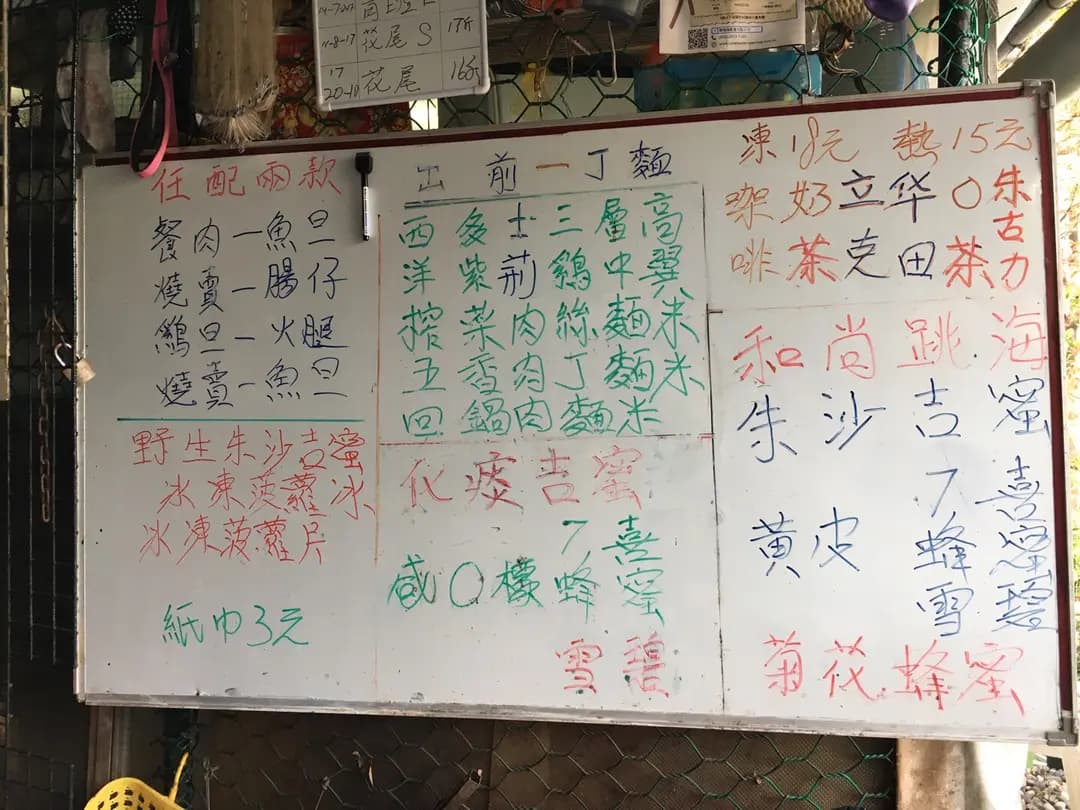 11-8-17 花尾 S 17斤
17
20-10 花尾 16斤
任配兩款
餐肉一魚旦
燒賣一腸仔
鷄旦一火腿
燒賣一魚旦
野生朱沙吉蜜
冰凍菠蘿冰
冰凍菠蘿片
紙巾3元
出前一丁麵
西多士三層高
洋紫荊鷄中翼
榨菜肉絲麵米
五香肉丁麵米
回鍋肉麵米
化痰吉蜜
7喜
咸〇檬蜂蜜
雪碧
凍18元 熱15元
咖奶立华〇朱
古
啡茶克田茶力
和尚跳海
朱沙吉蜜
7喜
黄皮蜂蜜
雪碧
菊花蜂蜜